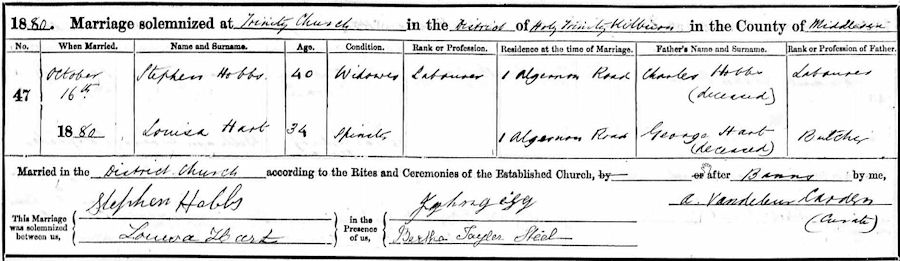 1880. Marriage solemnized at Trinity Church in the District of Holy Trinity Kilburn in the County of Middlesex
No. When Married. Name and Surname. Age. Condition. Rank or Profession. Residence at the time of Marriage. Father's Name and Surname. Rank or Profession of Father.
47 October 16th 1880 Stephen Hobbs 40 Widower Labourer 1 Algernon Road Charles Hobbs (deceased) Labourer
Louisa Hart 34 Spinster 1 Algernon Road George Hart (deceased) Butcher
Married in the District Church according to the Rites and Ceremonies of the Established Church, by or after Banns by me,
This Marriage was solemnized between us, Stephen Hobbs in the Presence of us, A. Vandeleur
Louisa Hart Bertha Tayler Steel (Curate)